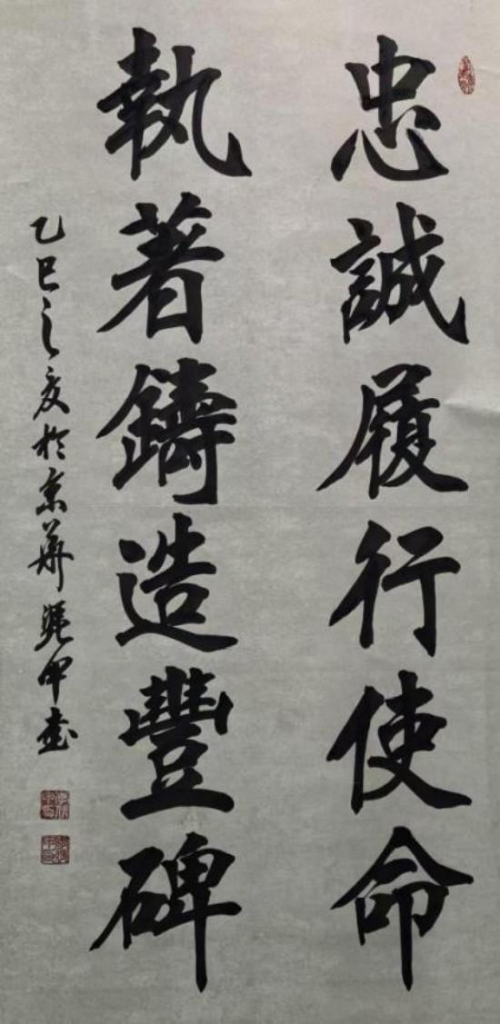 忠誠履行使命
執著鑄造豐碑
乙巳之夏於京華